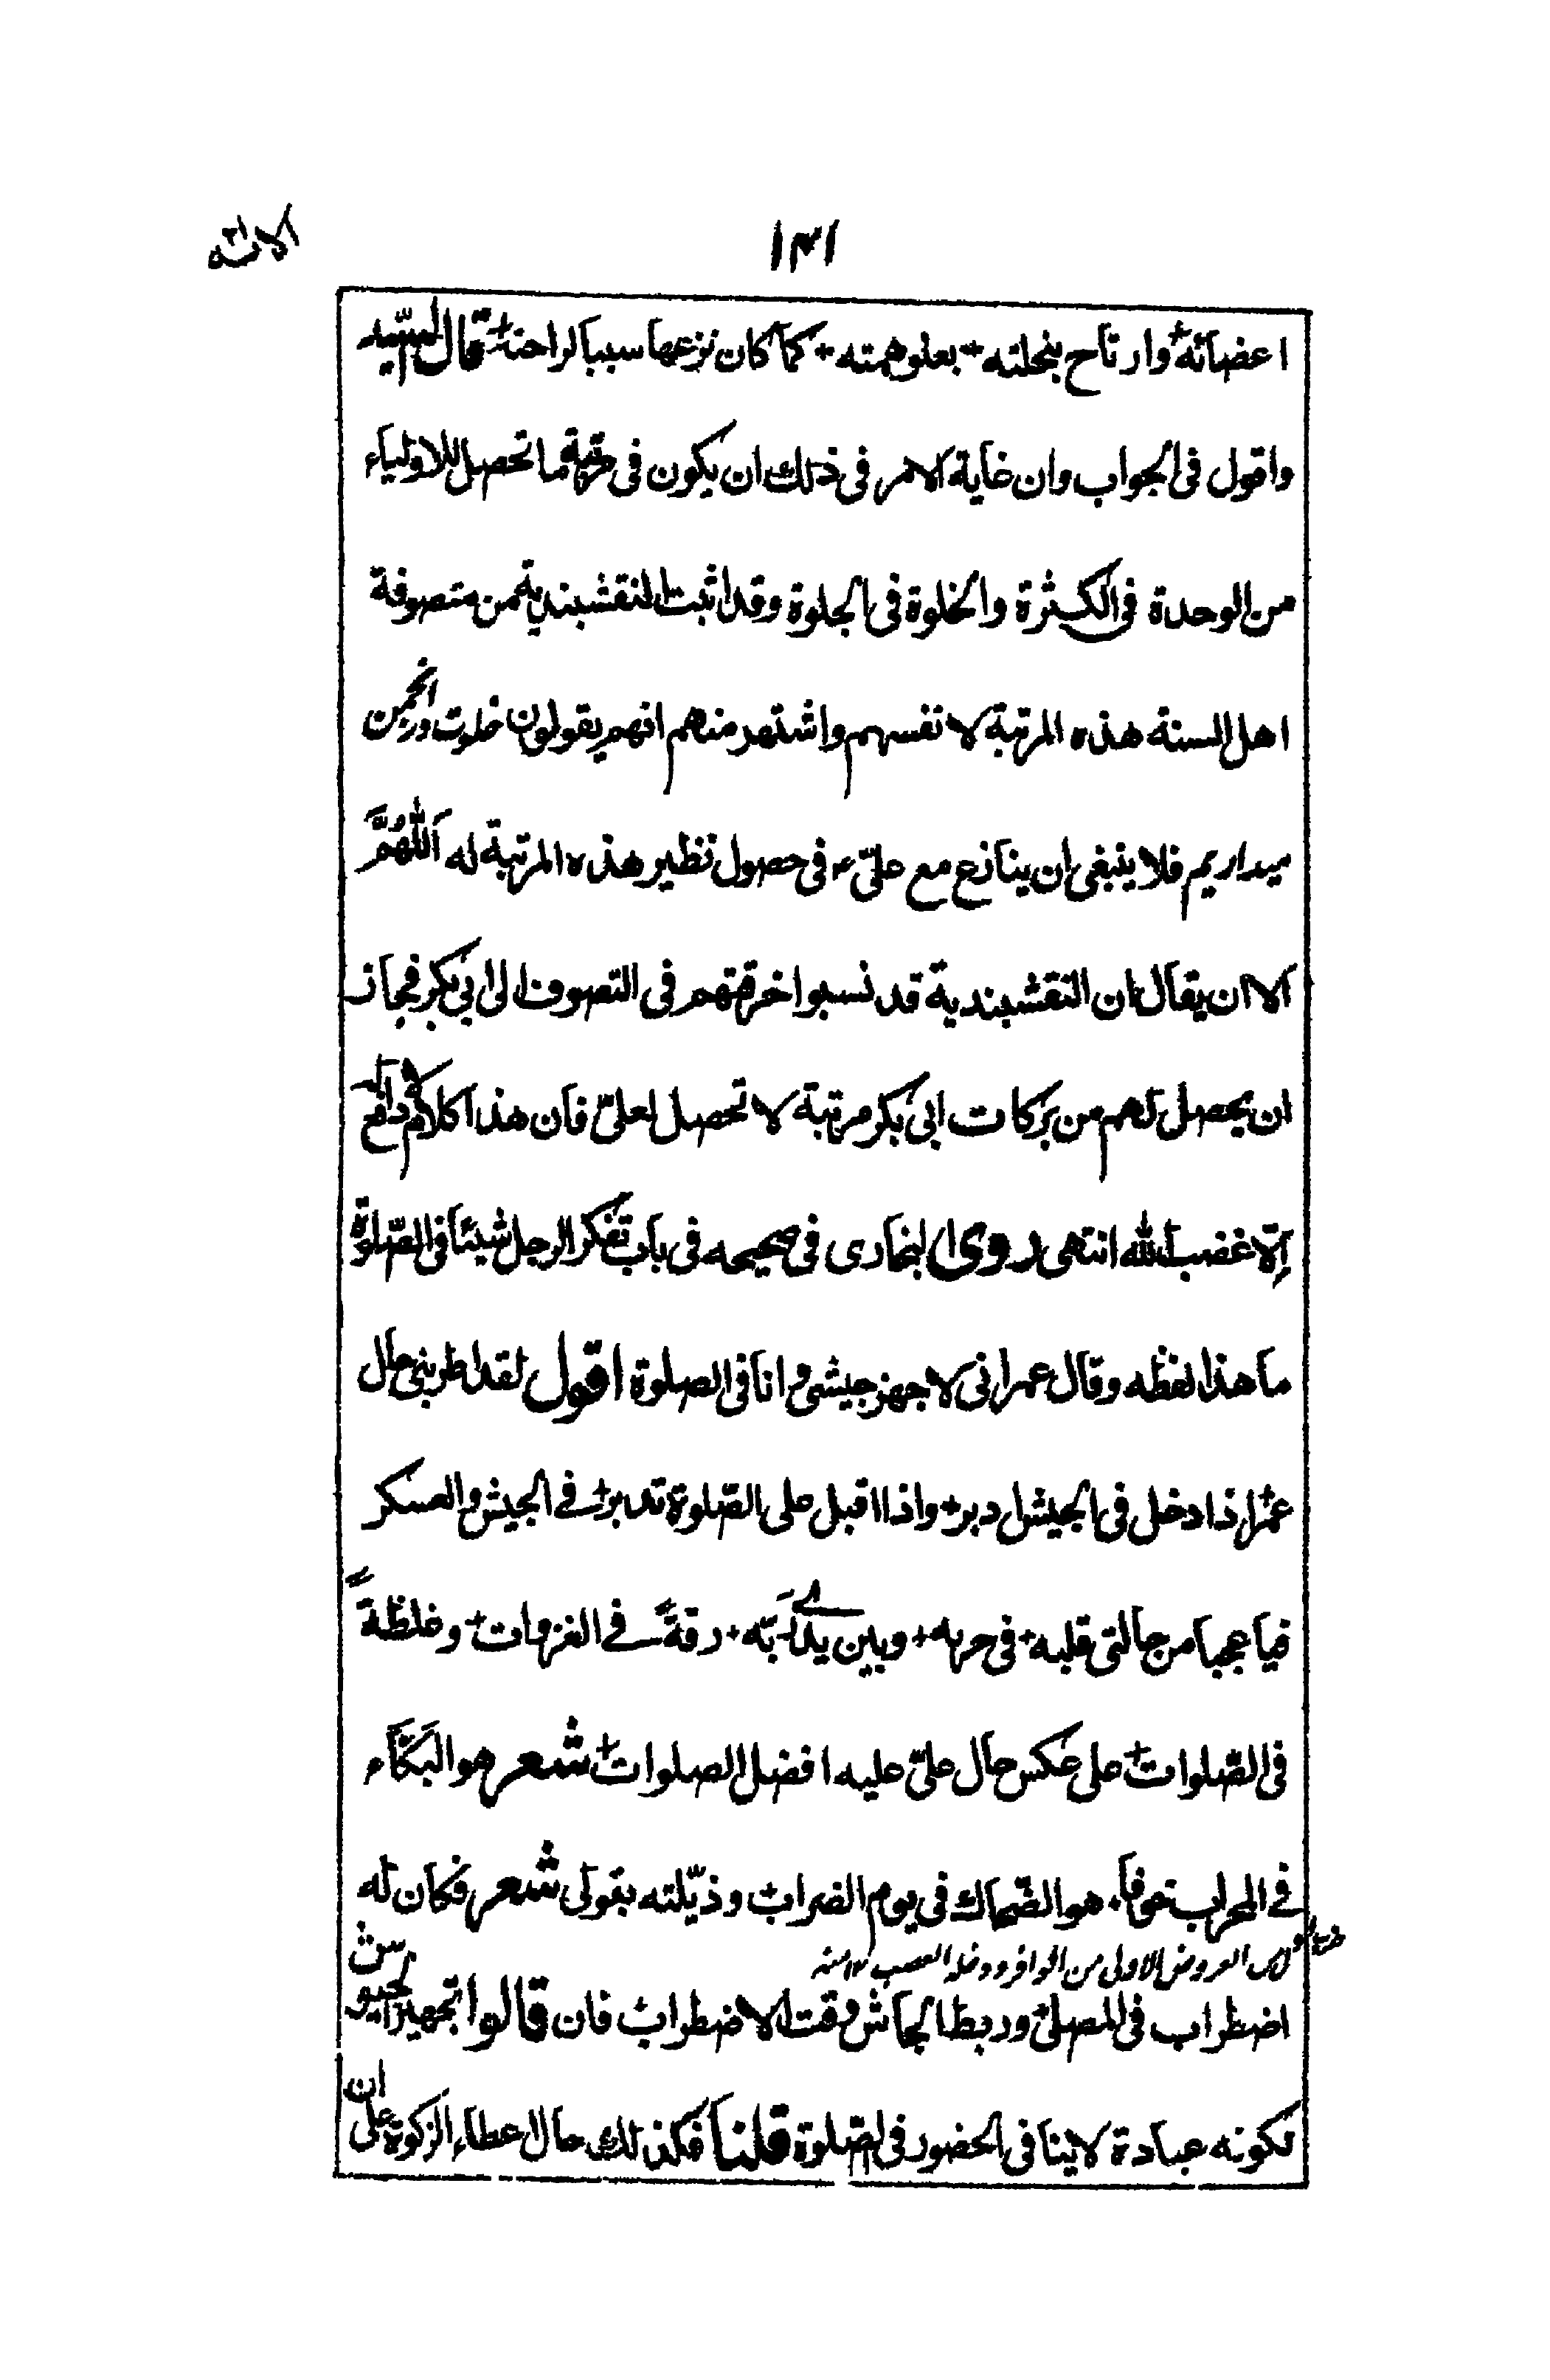 ١٣١
اعضائه + وارتاح بنحلته + بعلو همته + كما كان نزعها سببا لراحته + قال السيد
واقول فى الجواب وان غاية الامر فى ذلك ان يكون فى مرتبة ما تحصل للاولياء
من الوحدة فى الكثرة والخلوة فى الجلوة وقد اثبت النقشبندية من متصوفة
اهل السنة هذه المرتبة لا نفسهم واشتهر منهم انهم يقولون خلوت در انجمن
ميداريم فلا ينبغى ان ينازع مع علىّ ؑ فى حصول نظير هذه المرتبة له اَللّٰهُمَّ
الا ان يقال ان النقشبندية قد نسبوا خرقتهم فى التصوف الى ابى بكر فجاز
ان يحصل لهم من بركات ابى بكر مرتبة لا تحصل لعلىّ فان هذا كلام لا دافع له
اِلّا غضب الله انتهى روى البخارى فى صحيحه فى باب تفكر الرجل شيئا فى الصّلوة
ما هذا لفظه وقال عمر انى لا جهز جيشى وانا فى الصلوة اقول لقد اطربنى حال
عمر + اذا دخل فى الجيش ادبر + واذا اقبل على الصّلوة تدبر + فے الجيش والعسكر
فيا عجبا من حالتى قلبه + فى حربه + وبين يدے رَبّه + رقةً فے الغزوات + وغلظةً
فى الصّلوات + على عكس حال علىّ عليه افضل الصلوات + شعر هو البَكّاء
فے المحراب خوفا + هو الضّحاك فى يوم الضراب + وذيّلته بقولى شعر فكان له
العروض الاولى من الوافر ودخله العصب ١٢ منه
اضطراب فى المصلى + وربط الجاش وقت الاضطراب + فان قالوا تجهيز الجيوش
لكونه عبادة لا ينافى الحضور فى الصّلوة قلنا فكذلك حال اعطاء الزكوة على ان